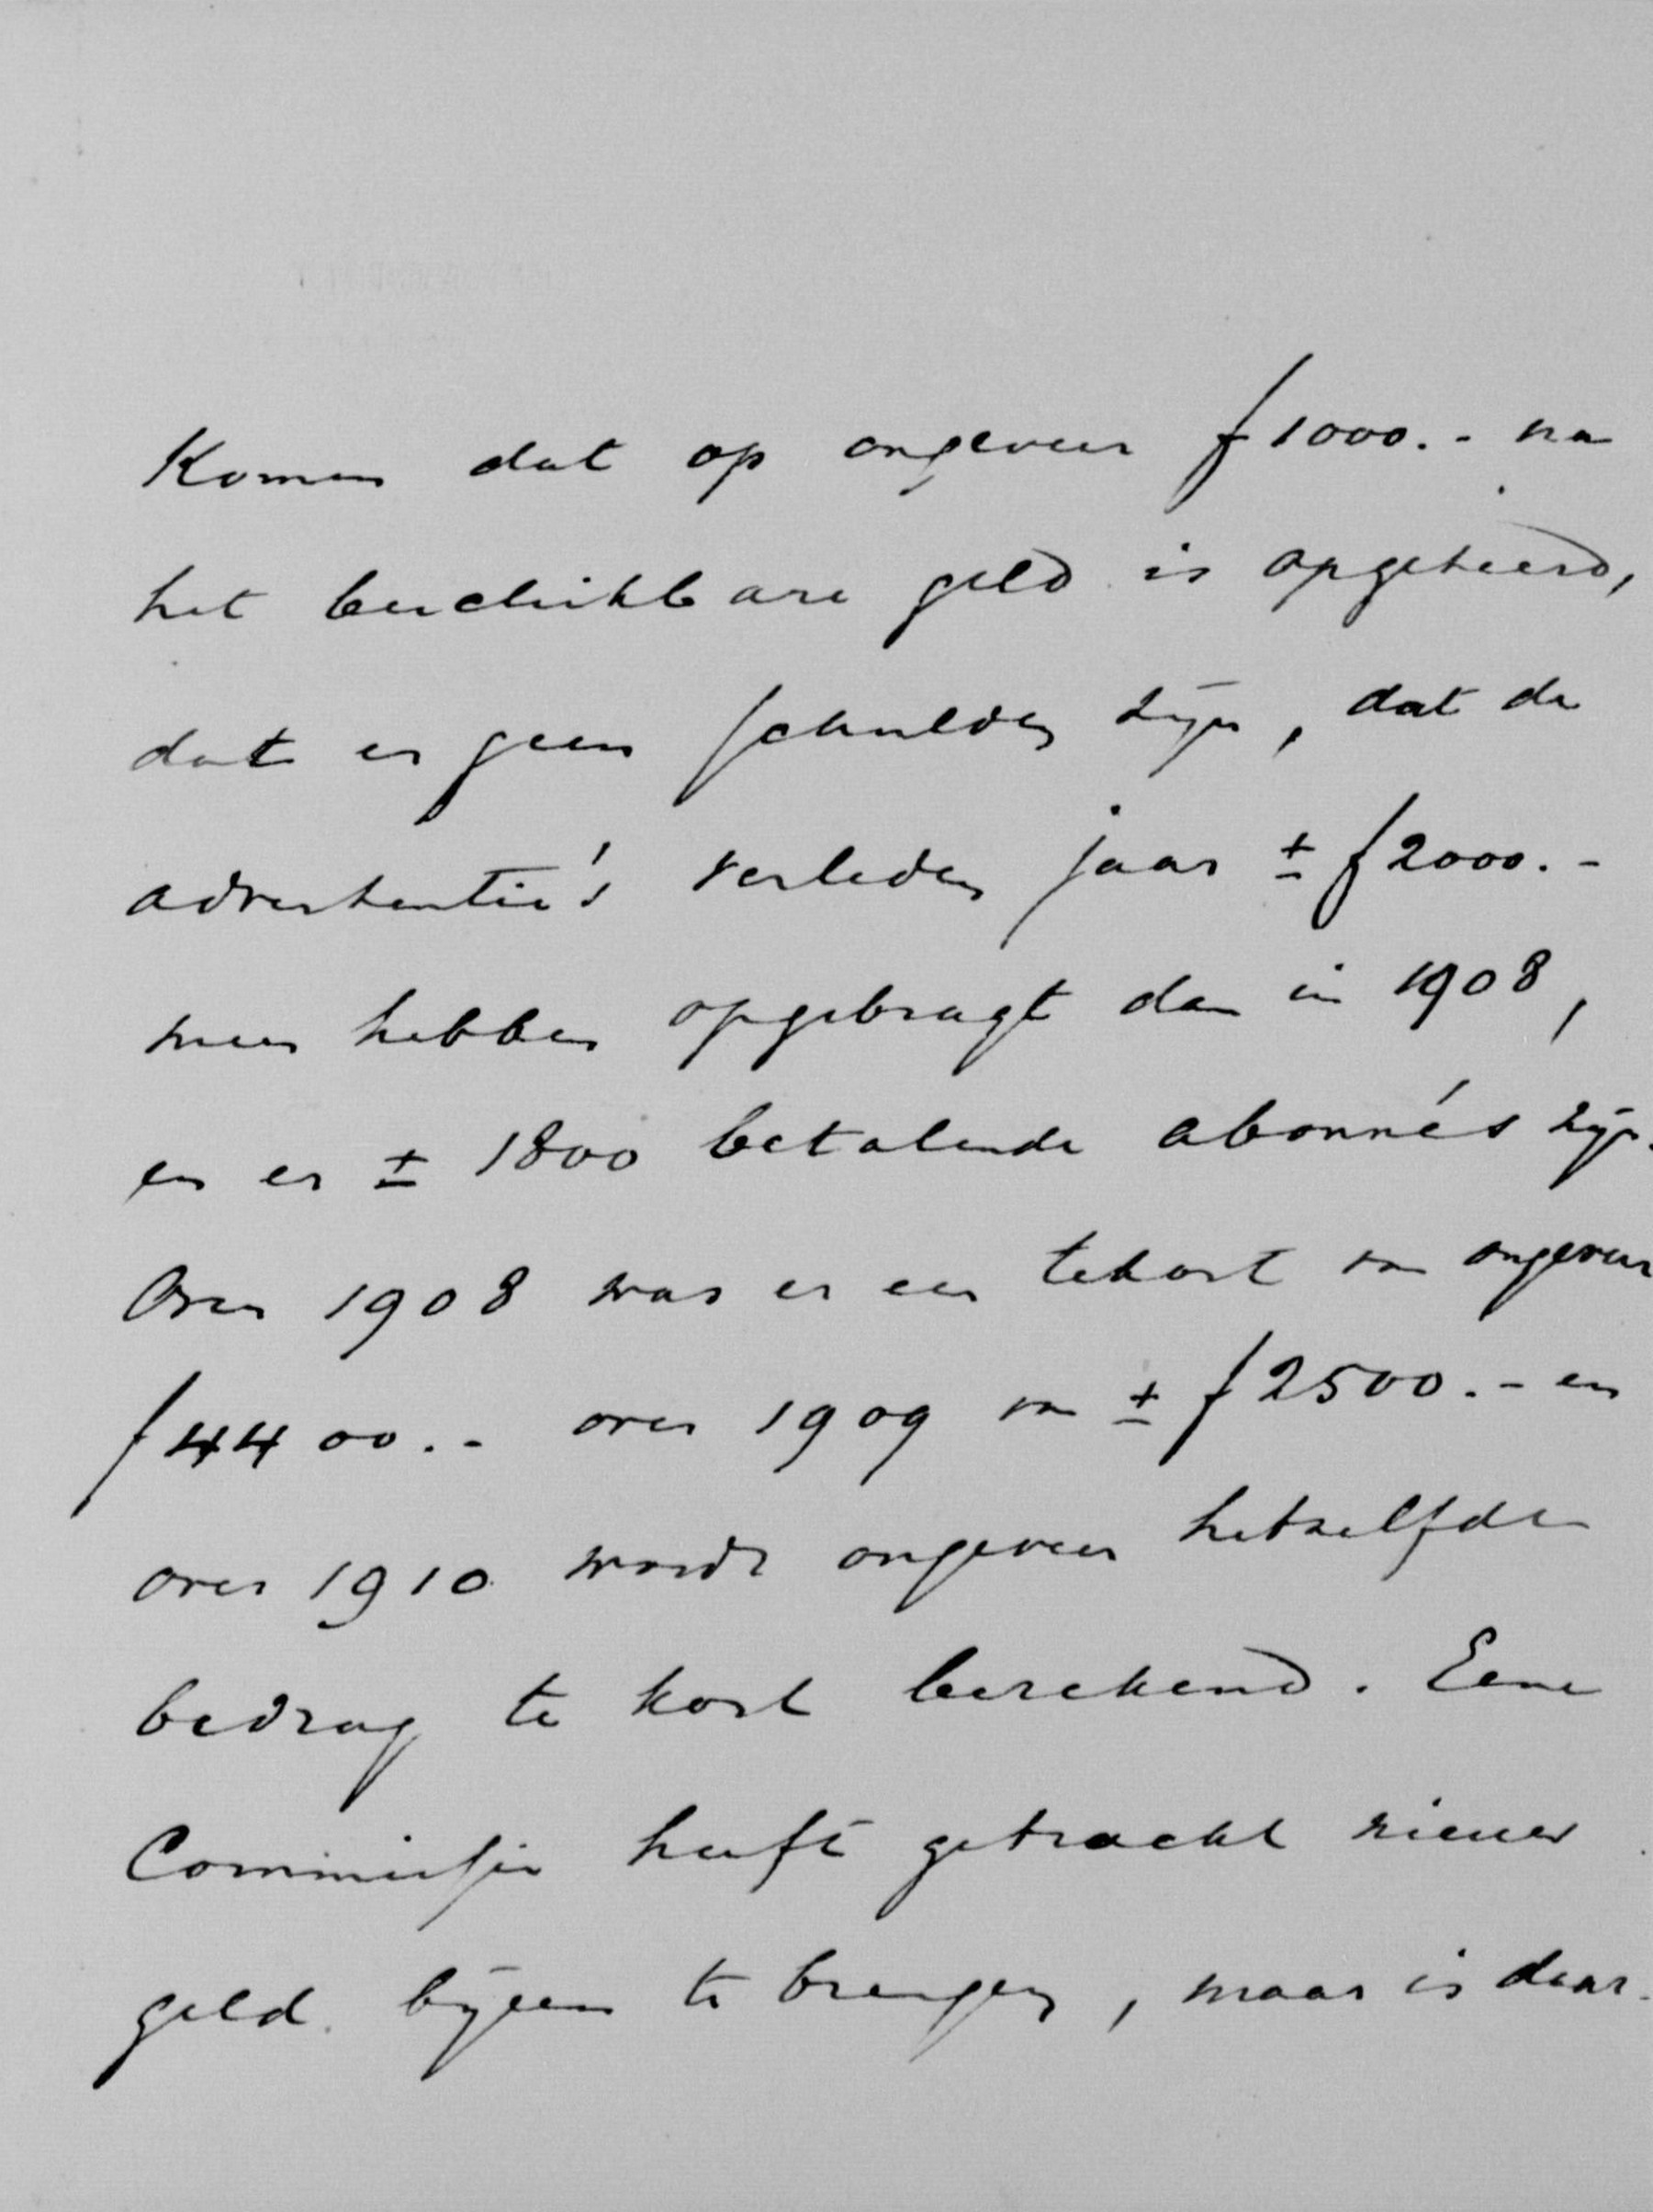 Komen dat op ongeveer f 1000.- na
het beschikbare geld is opgeteerd,
dat er geen schulden zijn, dat de
advertentie's verleden jaar ± f 2000.-
meer hebben opgebragt dan in 1908,
en er ± 1800 betalende abonnés zijn.
Over 1908 was er een tekort van ongeveer
f 4400.- over 1909 van ± f 2500.- en
over 1910 wordt ongeveer hetzelfde
bedrag te kort berekend. Eene
Commissie heeft getracht nieuw
geld bijeen te brengen, maar is daar-